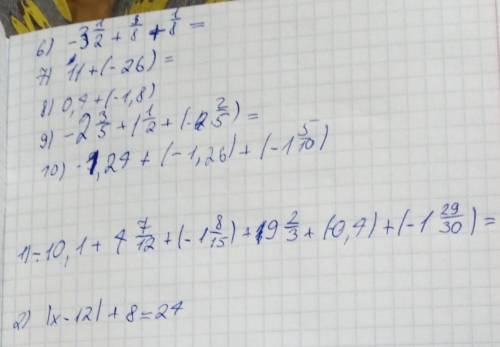 6) -3 1/2 + 5/8 + 1/8 =
7) 11 + (-26) =
8) 0,4 + (-1,8)
9) -2 3/5 + 1 1/2 + (-2 2/5) =
10) -1,24 + (-1,26) + (-1 5/10)
1) -10,1 + 4 7/12 + (-1 8/15) + 19 2/3 + (-0,4) + (-1 29/30) =
2) |x - 12| + 8 = 24